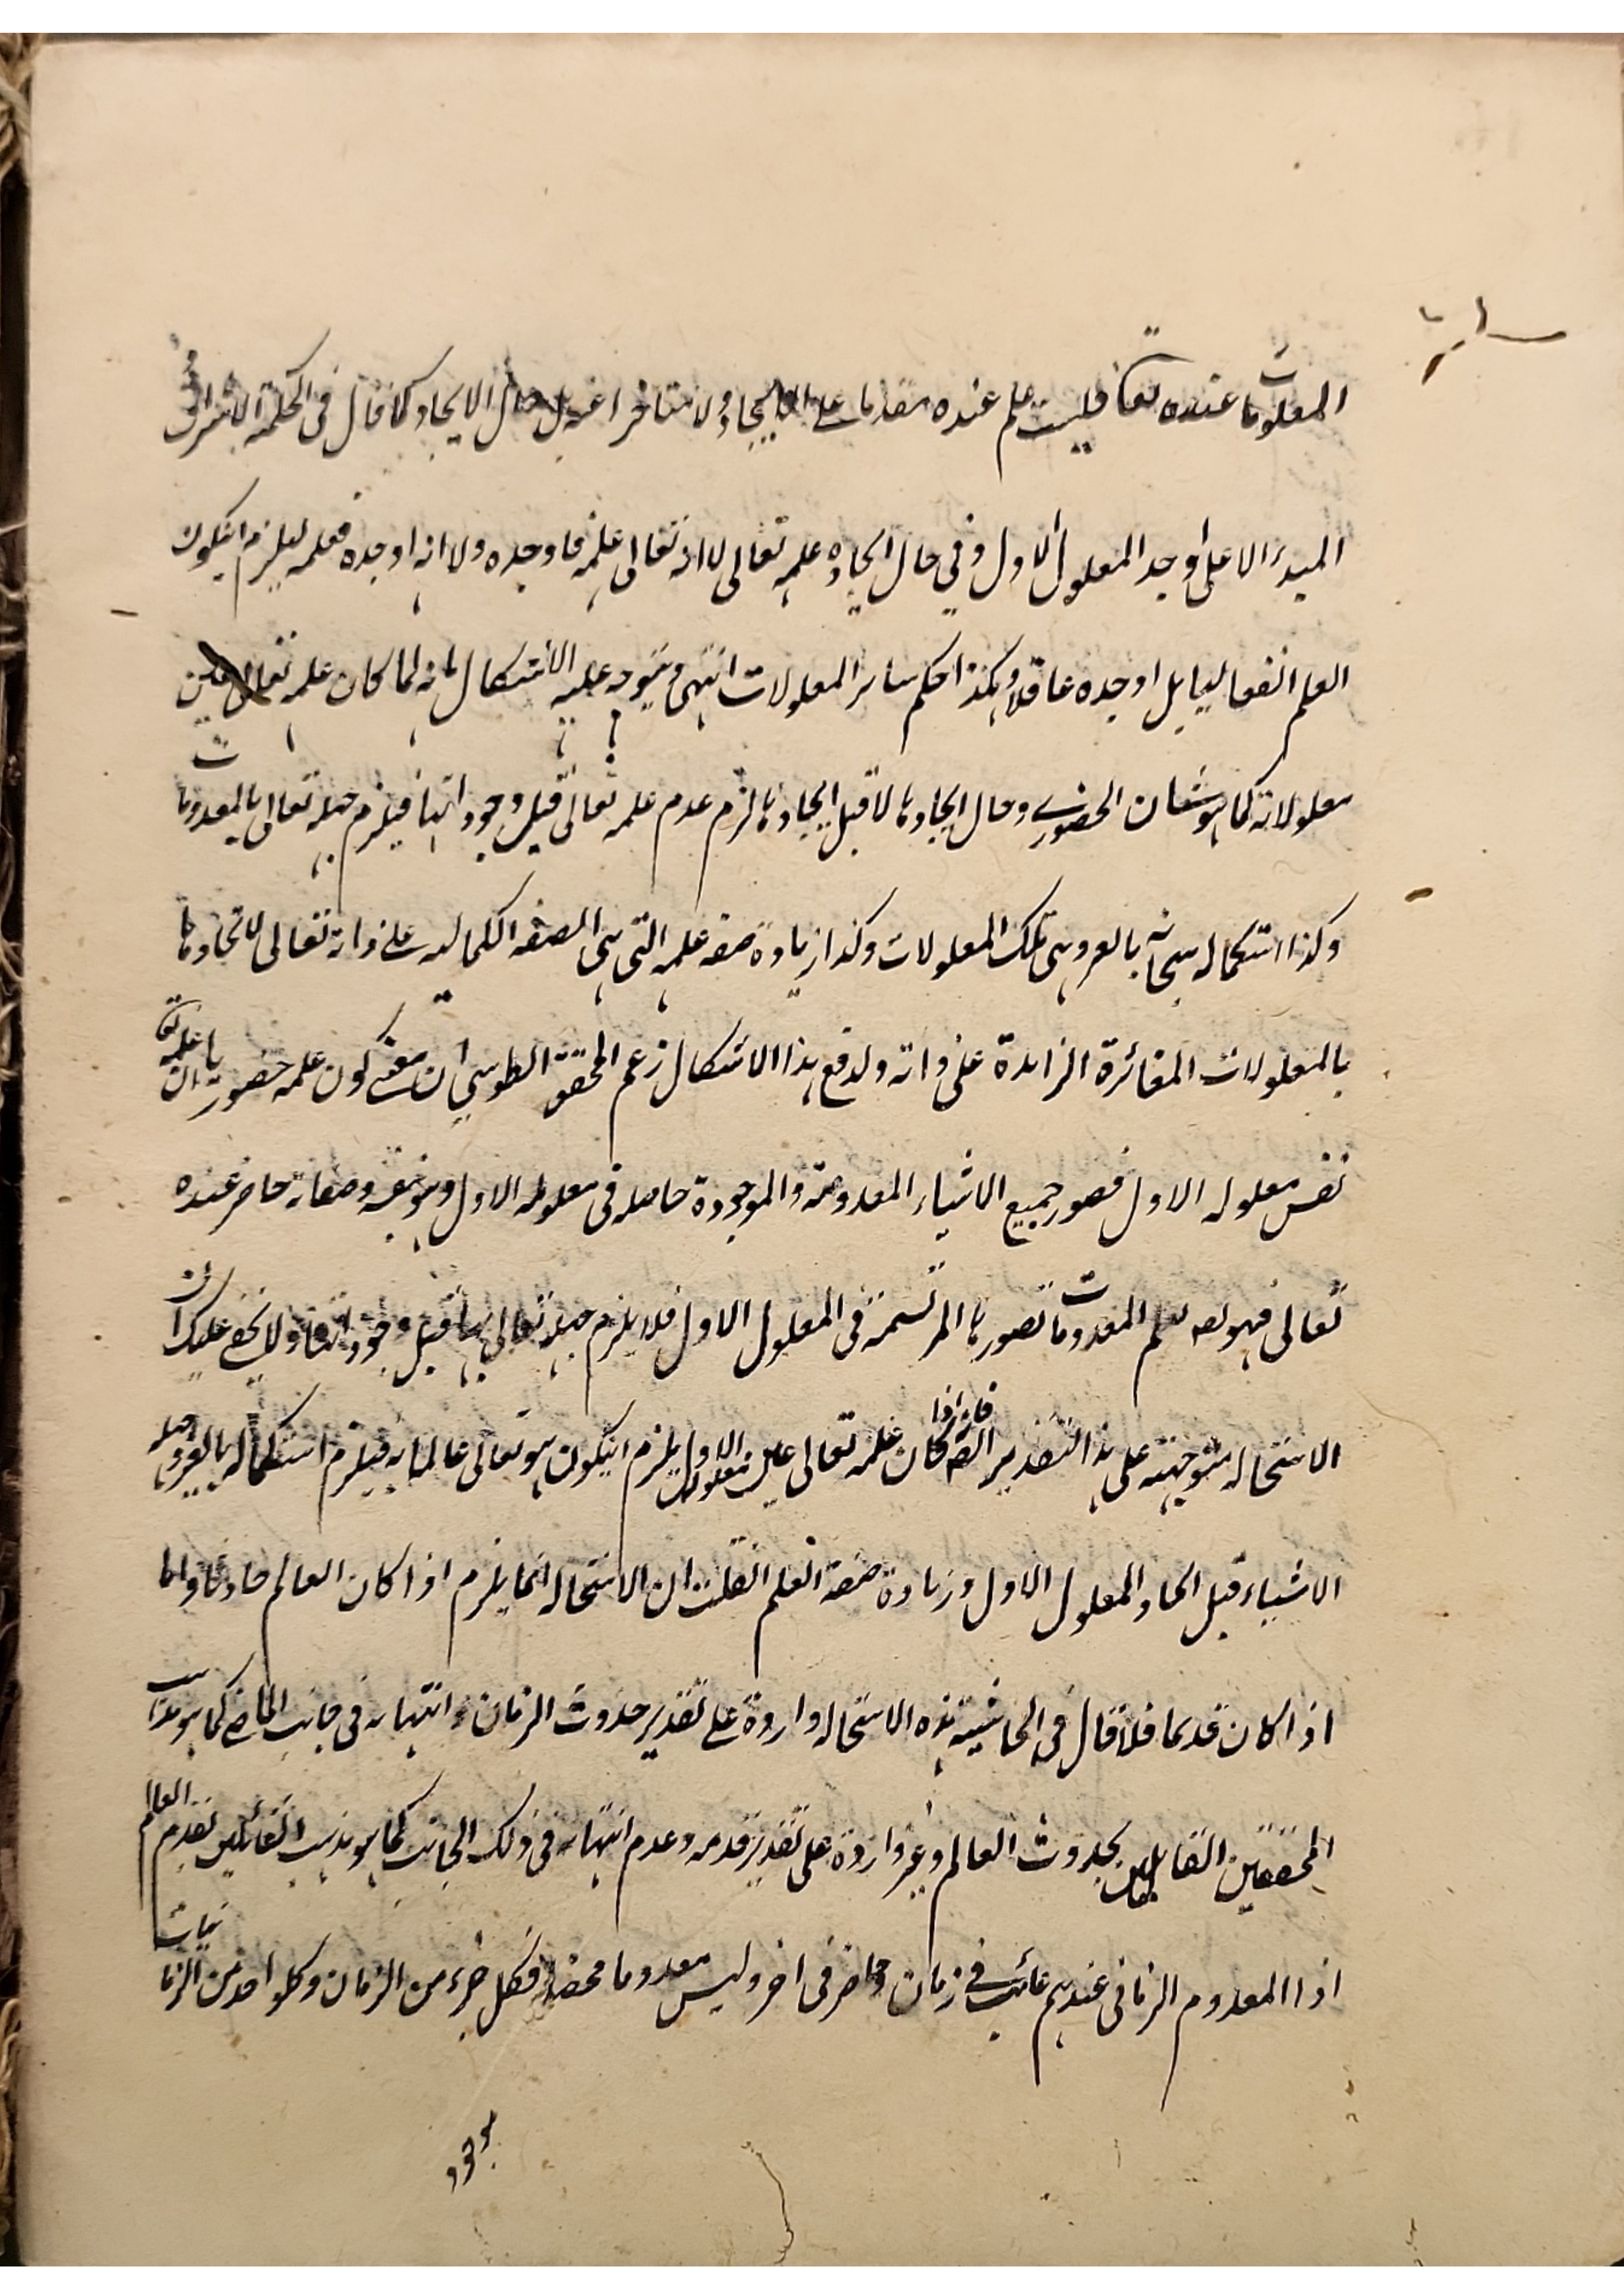 المعلومات عنده تعا فليست علم عنده مقدما على الايجاد ولا متاخرا عنه بل حال الايجاد كما قال فى الحكمة الاشراق
المبدء الاعلى اوجد المعلول الاول وفي حال ايجاده علمه تعالى لا انه تعالى علمه فاوجده ولا انه اوجده فعلمه ليلزم انيكون
العلم انفعاليا بل اوجده عاقلا وهكذا حكم ساير المعلولات انتهى ويتوجه عليه الاشكال بانه لما كان علمه تعالى عين
معلولاته كما هو شان الحضوري وحال ايجادها لا قبل ايجادها لزم عدم علمه تعالى قبل وجوداتها فيلزم جهله تعالى بالمعدومات
وكذا استكماله سبحانه بالغير وهى تلك المعلولات وكذا زيادة صفة علمه التى هى الصفة الكمالية على ذاته تعالى لاتحادها
بالمعلولات المغائرة الزايدة على ذاته ولدفع هذا الاشكال زعم المحقق الطوسي ان معنى كون علمه حضوريا ان علمه تعا
نفس معلوله الاول فصور جميع الاشياء المعدومة والموجودة حاصله فى معلوله الاول وهو بنفسه وصفاته حاضر عنده
تعالى فهو يعلم المعدومات بصورها المرتسمة فى المعلول الاول فلا يلزم جهله تعالى بها قبل وجوداتها ولا يخفى عليك ان
الاستحالة متوجهة على هذا التقدير ايضا فانه اذا كان علمه تعالى عين معلوله الاول يلزم انيكون هو تعالى عالما به فيلزم استكماله بالغير وجهله
الاشياء قبل ايجاد المعلول الاول وزيادة صفة العلم انقلت ان الاستحالة انما يلزم اذا كان العالم حادثا واما
اذا كان قديما فلا قال فى الحاشية هذه الاستحالة واردة على تقدير حدوث الزمان وانتهايه فى جانب الماضى كما هو مذهب
المحققين القايلين بحدوث العالم وغير واردة على تقدير قدمه وعدم انتهايه فى ذلك الجانب كما هو مذهب القائلين بقدم العالم
اذا المعدوم الزمانى عندهم غائب فى زمان وحاضر فى اخر وليس معدوما محضا فكل جزء من الزمان وكلواحد من الزمانيات
موجود